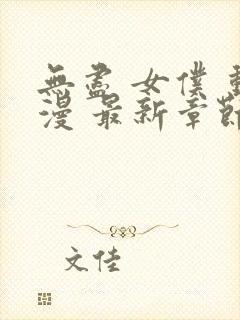 無盡 女僕 動
漫 最新章節
文佳